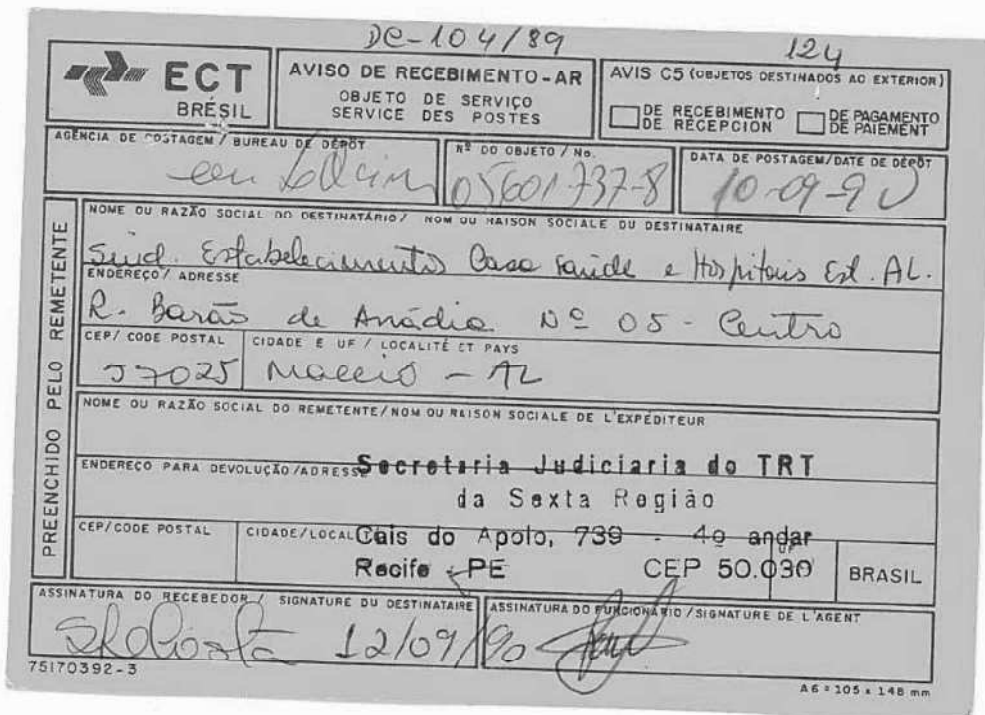 DC-104/89
124
ECT
BRÉSIL
AVISO DE RECEBIMENTO-AR
OBJETO DE SERVIÇO
SERVICE DES POSTES
AVIS C5 (OBJETOS DESTINADOS AO EXTERIOR)
DE RECEBIMENTO
DE RÉCEPCION
DE PAGAMENTO
DE PAIEMENT
AGÊNCIA DE POSTAGEM / BUREAU DE DÉPÔT
Nº DO OBJETO / No.
05601737-8
DATA DE POSTAGEM/DATE DE DÉPÔT
10-09-90
PREENCHIDO PELO REMETENTE
NOME OU RAZÃO SOCIAL DO DESTINATÁRIO / NOM OU RAISON SOCIALE DU DESTINATAIRE
Sind. Estabelecimentos Casa Saúde e Hospitais Est. AL.
ENDEREÇO / ADRESSE
R. Barão de Anádia Nº 05 - Centro
CEP/ CODE POSTAL
57025
CIDADE E UF / LOCALITÉ ET PAYS
Maceió - AL
NOME OU RAZÃO SOCIAL DO REMETENTE/NOM OU RAISON SOCIALE DE L'EXPÉDITEUR
ENDEREÇO PARA DEVOLUÇÃO/ADRESSE
Secretaria Judiciaria do TRT
da Sexta Região
CEP/CODE POSTAL
CIDADE/LOCAL
Cais do Apolo, 739 - 4º andar
Recife - PE CEP 50.030
BRASIL
ASSINATURA DO RECEBEDOR / SIGNATURE DU DESTINATAIRE
12/09/90
ASSINATURA DO FUNCIONÁRIO/SIGNATURE DE L'AGENT
75170392-3
A6 = 105 x 148 mm